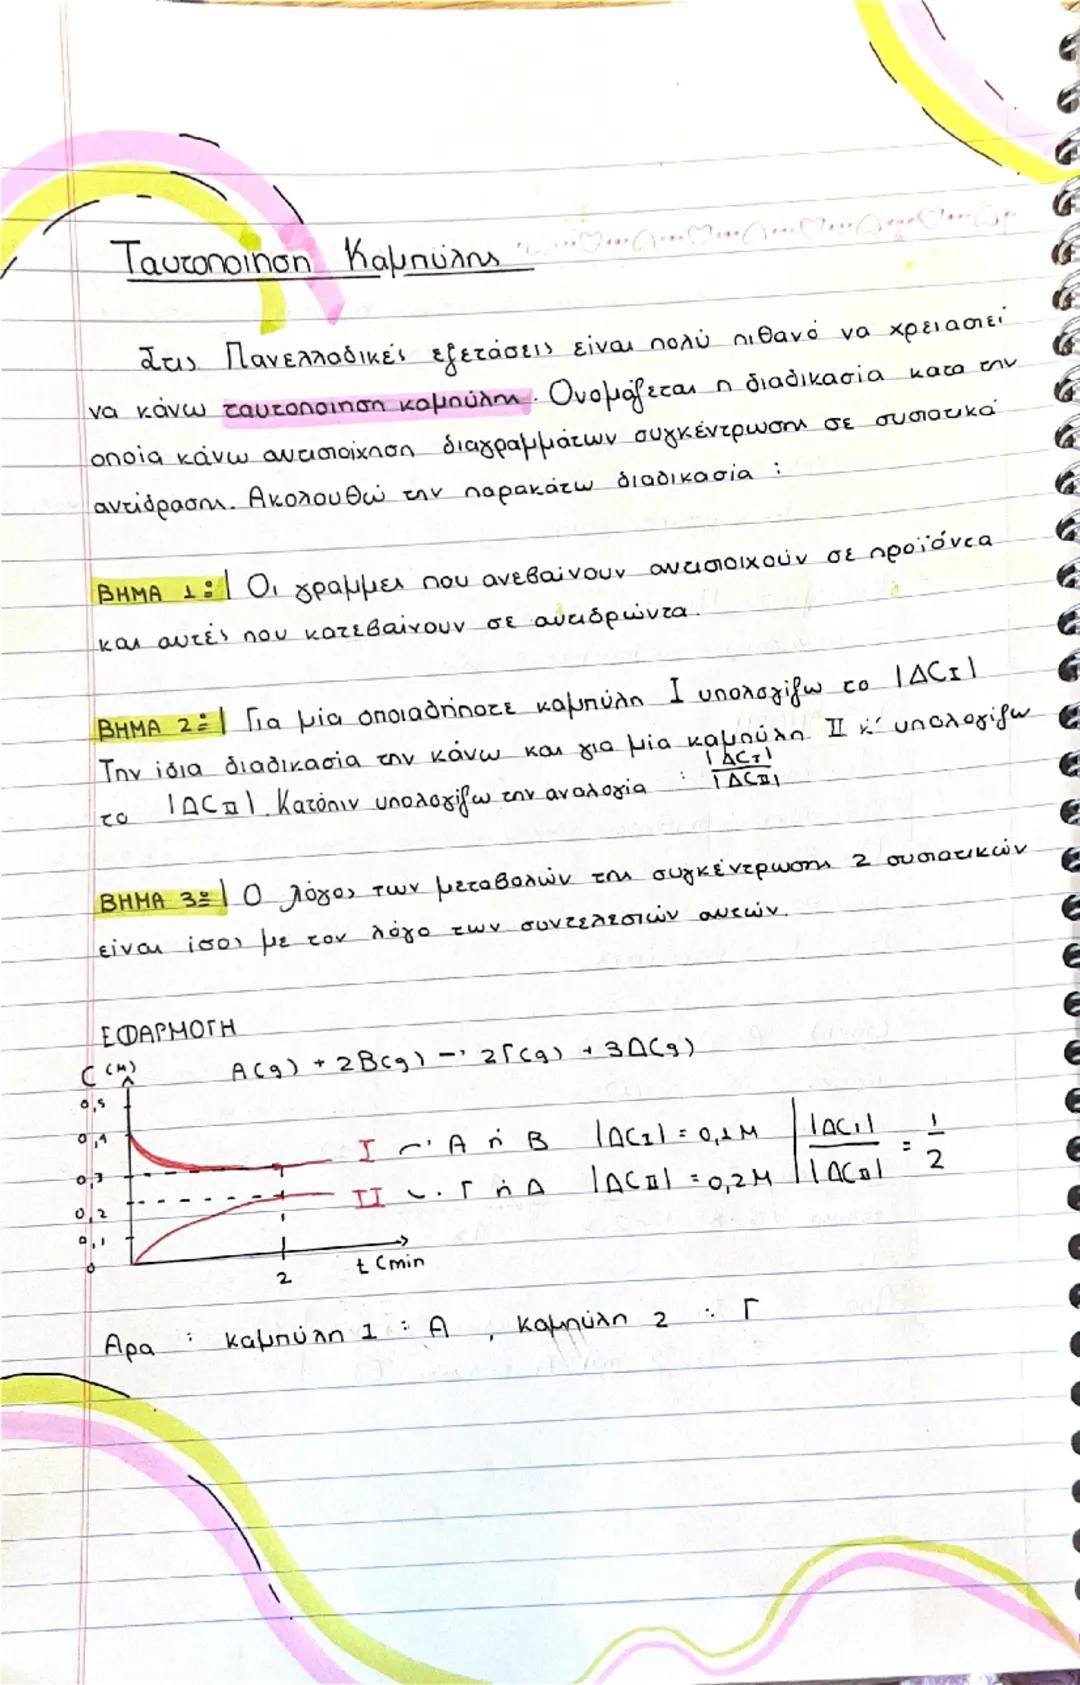 Ταυτοποίηση Καμπύλης
Στις Πανελλαδικές εξετάσεις είναι πολύ πιθανό να χρειαστεί
να κάνω ταυτοποίηση καμπύλης. Ονομάζεται η διαδικασία κατα την
οποία κάνω αντιστοίχηση διαγραμμάτων συγκέντρωσης σε συστατικά
αντίδρασης. Ακολουθώ την παρακάτω διαδικασία :
ΒΗΜΑ 1º| Οι γραμμές που ανεβαίνουν αντιστοιχούν σε προϊόντα
και αυτές που κατεβαίνουν σε αντιδρώντα.
ΒΗΜΑ 2º| Για μία οποιαδήποτε καμπύλη I υπολογίζω το |ΔCI|
Την ίδια διαδικασία την κάνω και για μία καμπύλη II κ' υπολογίζω
το |ΔCII|. Κατόπιν υπολογίζω την αναλογία : |ΔCI| / |ΔCII|
ΒΗΜΑ 3º| Ο λόγος των μεταβολών της συγκέντρωσης 2 συστατικών
είναι ίσος με τον λόγο των συντελεστών αυτών.
ΕΦΑΡΜΟΓΗ
A(g) + 2B(g) → 2Γ(g) + 3Δ(g)
C (M)
0,5
0,4
0,3
0,2
0,1
0
I → A ή B |ΔCI| = 0,1M
II → Γ ή Δ |ΔCII| = 0,2M
|ΔCI| / |ΔCII| = 1/2
2
t (min
Αρα : καμπύλη 1 : A , καμπύλη 2 : Γ